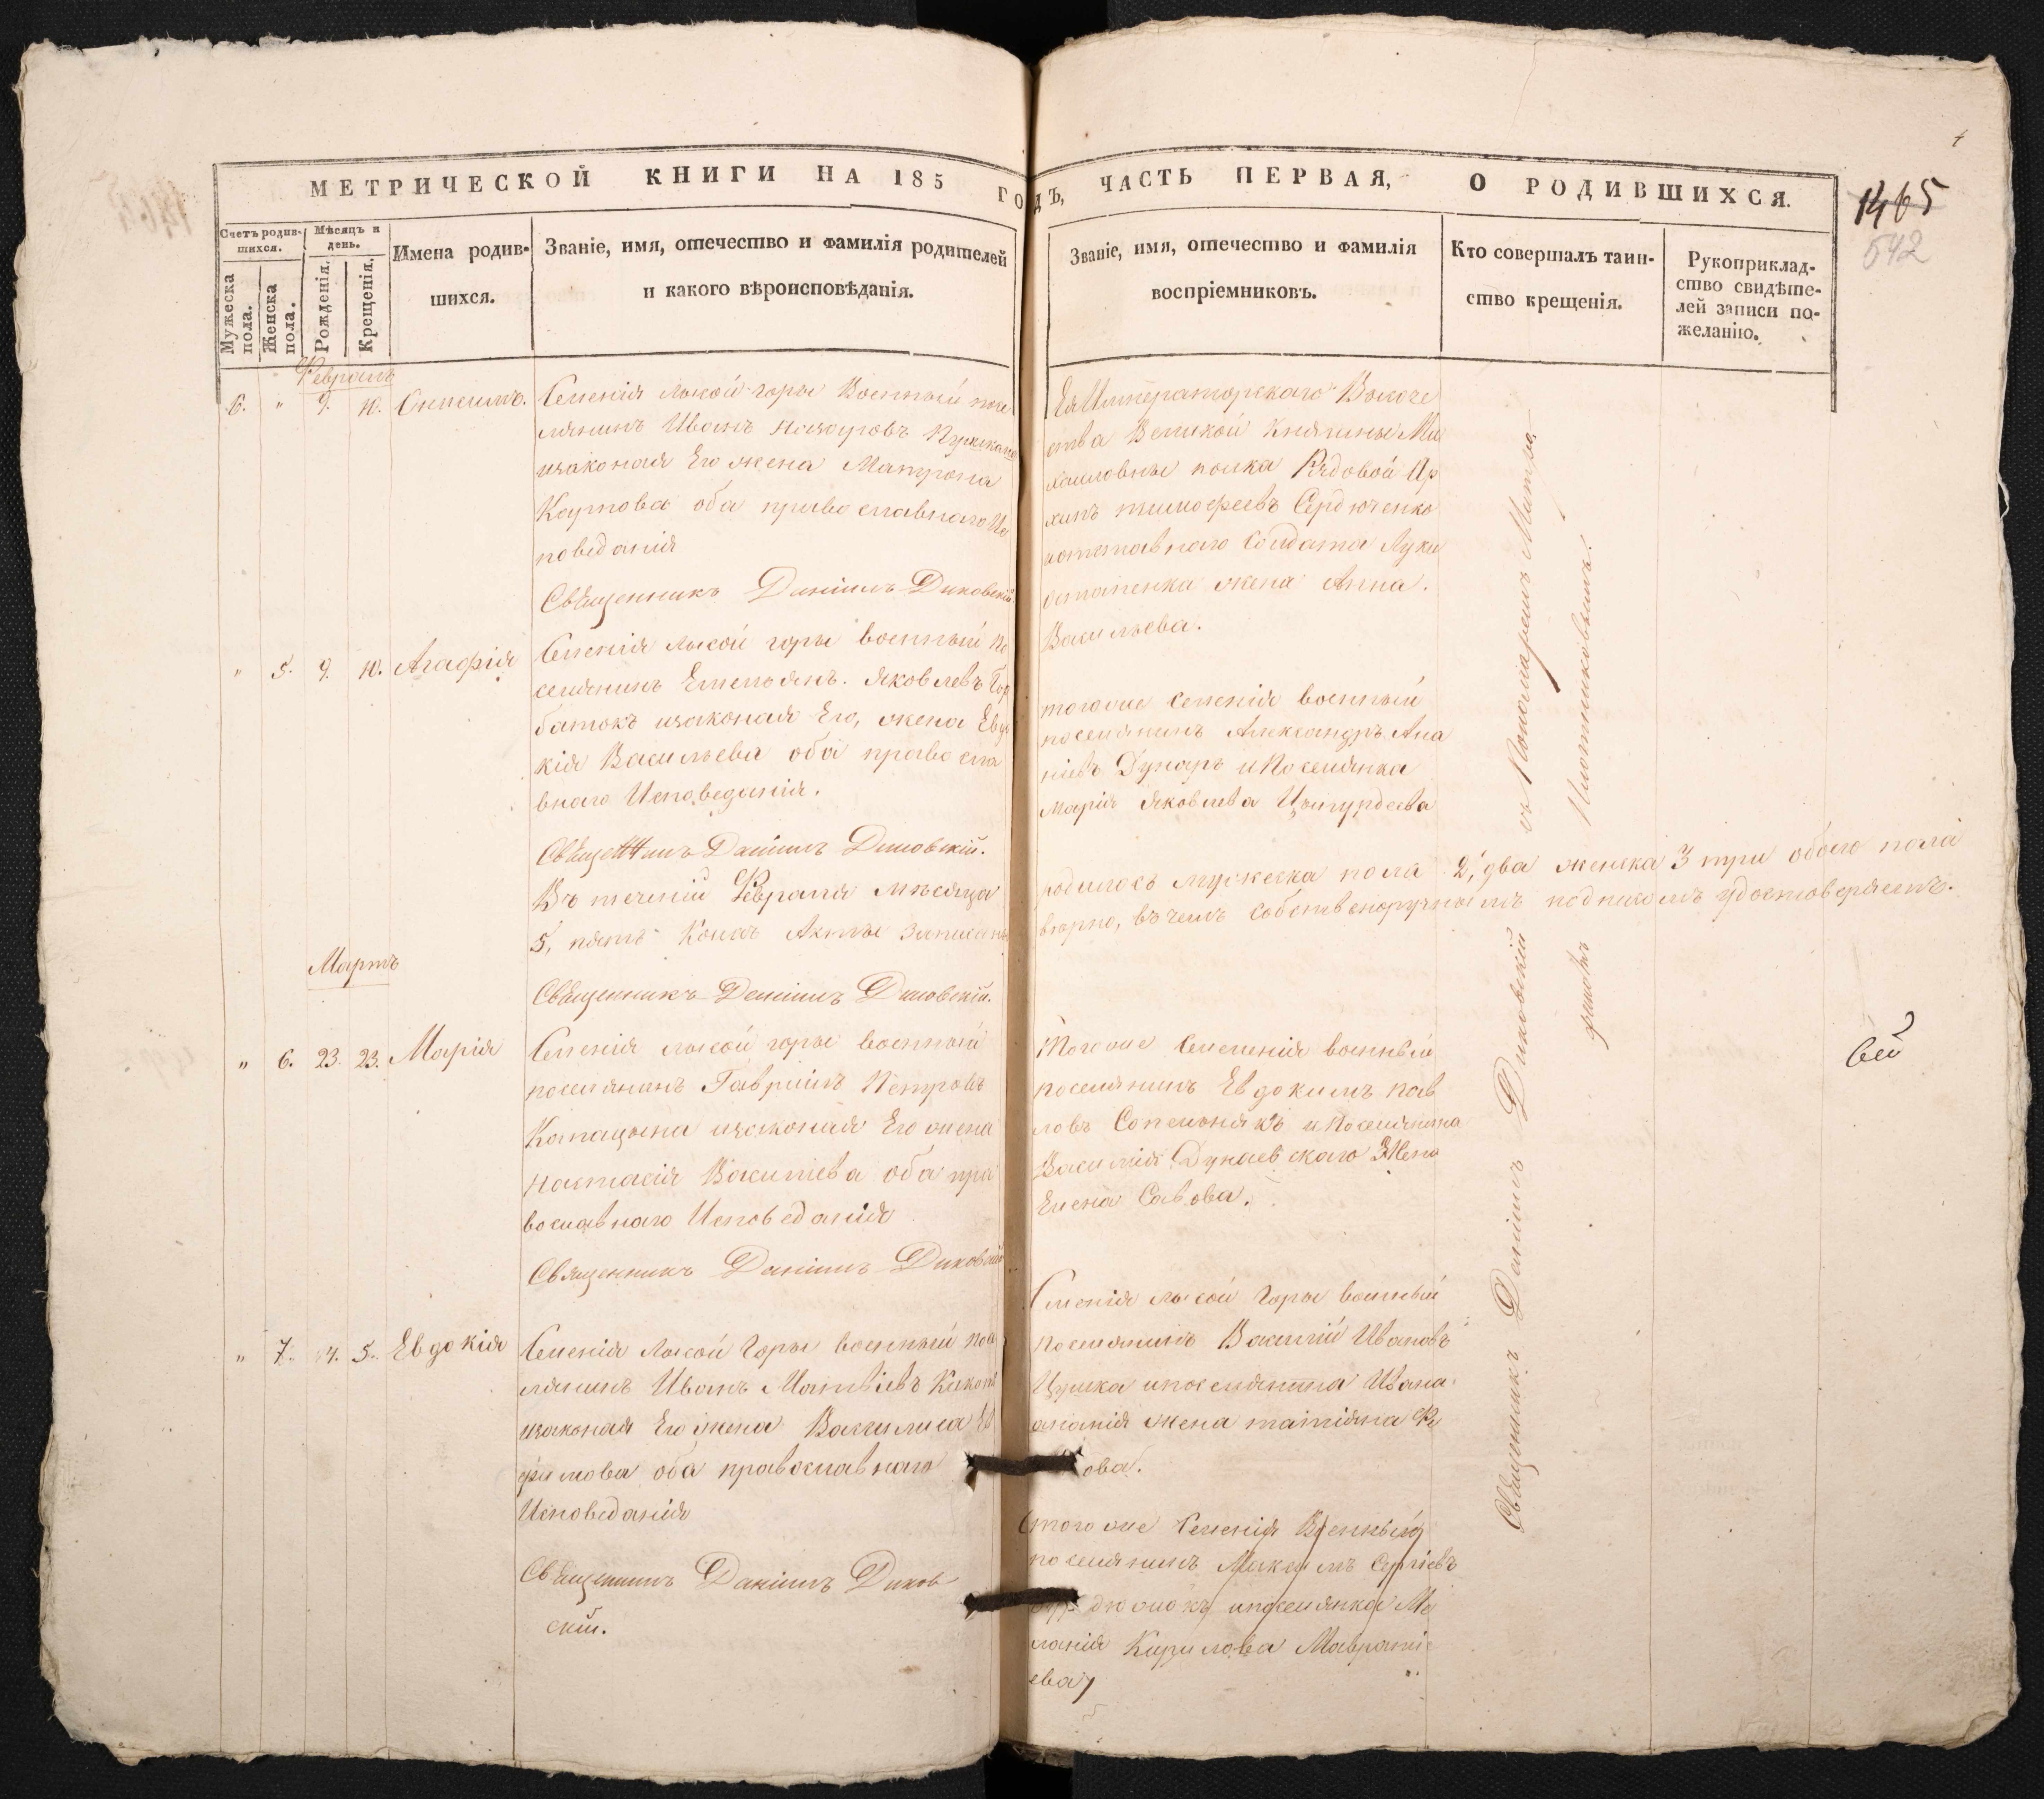 МЕТРИЧЕСКОЙ КНИГИ НА 185 ГОДЪ, ЧАСТЬ ПЕРВАЯ, О РОДИВШИХСЯ.
4
1465
542
Счетъ родив-
шихся.
Мужеска пола.
Женска пола.
Мѣсяцъ и
день.
Рожденія.
Крещенія.
Имена родив-
шихся.
Званіе, имя, отечество и фамилія родителей
и какого вѣроисповѣданія.
Званіе, имя, отечество и фамилія
воспріемниковъ.
Кто совершалъ таин-
ство крещенія.
Рукоприклад-
ство свидѣте-
лей записи по-
желанію.
Февраль
6. " 9. 10.
Селенія лысой горы Военный посе
лянинъ Иванъ Назаровъ
изаконая Его жена Матрона
Карпова оба православнаго Ис
поведанія
Священникъ Даніилъ Диковскій.
Ея Императорскаго Высоче
ства Великой Княгини Ми
хайловны полка Рядовой Ар
хипъ тимофеевъ Сердюченко
иотставнаго Солдата Луки
жена Анна.
Васильева.
" 5. 9. 10. Агафія
Селенія лысой горы военный по
селянинъ Емельянъ. Яковлевъ Гор
батокъ изаконая Его, жена Евдо
кія Васильева оба правосла
внаго Исповеданія.
Священникъ Даніилъ Диковскій.
тогоже селенія военный
поселянинъ Александръ Ана
ніевъ иПоселянка
марія Яковлева
Въ теченіи Февраля мѣсяца
5, пять Коихъ Акты записаны
родилось мужеска пола 2, два женска 3 три обоего пола
вѣрно, въ чемъ собственоручнымъ подписомъ удостоверяемъ.
Священникъ Даніилъ Диковскій.
Священникъ Даніилъ Диковскій съ Пономаремъ Митро-
фаномъ
Мартъ
" 6. 23. 23. Марія
Селенія лысой горы военный
поселянинъ Гавріилъ Петровъ
Капацына изаконая Его жена
настасія Василіева оба пра
вославнаго Исповеданія
Священникъ Даніилъ Диковскій
Тогоже Селенія военный
поселянинъ Евдокимъ пав
ловъ иПоселянина
Василія Дунаевскаго Жена
Елена Савова.
" 7. 5. Евдокія
Селенія Лысой Горы военный посе
лянинъ Иванъ Матвіевъ
изаконая Его жена Василиса Ев
фимова оба православнаго
Исповеданія
Священникъ Даніилъ Диков
скій.
Селенія лысой Горы военный
поселянинъ Василій Ивановъ
Цушка ипоселянина Ивана
жена татіяна
ова.
тогоже селенія Военный
поселянинъ Максимъ Сергіевъ
ипоселянка Ме
ланія Кирилова
ева